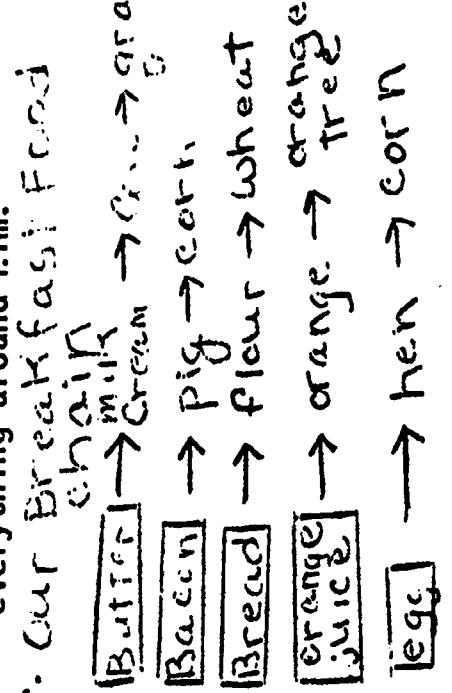 everything around him.
Our Breakfast Food
chain
Butter → milk
cream → → gra
Bacon → pig → corn
Bread → flour → wheat
orange
juice → orange → orange
tree
egg → hen → corn